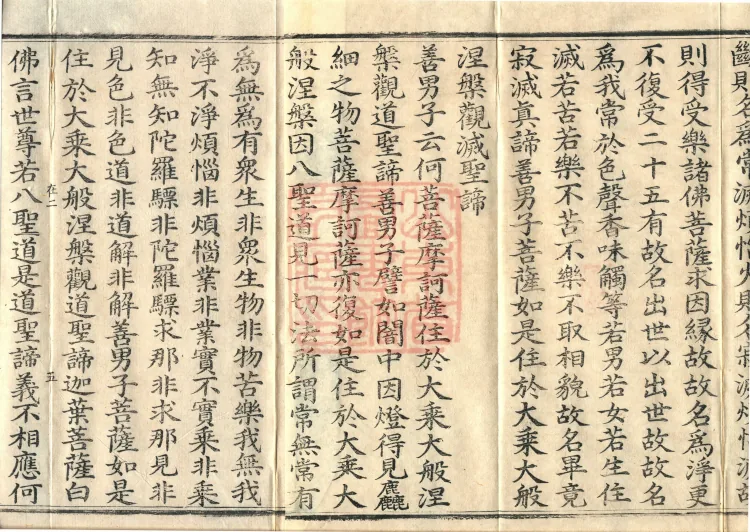 則名為常滅煩惱火則名寂滅煩惱滅故
則得受樂諸佛菩薩求因緣故故名為淨更
不復受二十五有故名出世以出世故故名
為我常於色聲香味觸等若男若女若生住
滅若苦若樂不苦不樂不取相貌故名畢竟
寂滅真諦善男子菩薩如是住於大乘大般
涅槃觀滅聖諦
善男子云何菩薩摩訶薩住於大乘大般涅
槃觀道聖諦善男子譬如闇中因燈得見麤
細之物菩薩摩訶薩亦復如是住於大乘大
般涅槃因八聖道見一切法所謂常無常有
為無為有眾生非眾生物非物苦樂我無我
淨不淨煩惱非煩惱業非業實不實乘非乘
知無知陀羅驃非陀羅驃求那非求那見非
見色非色道非道解非解善男子菩薩如是
在二 五
住於大乘大般涅槃觀道聖諦迦葉菩薩白
佛言世尊若八聖道是道聖諦義不相應何